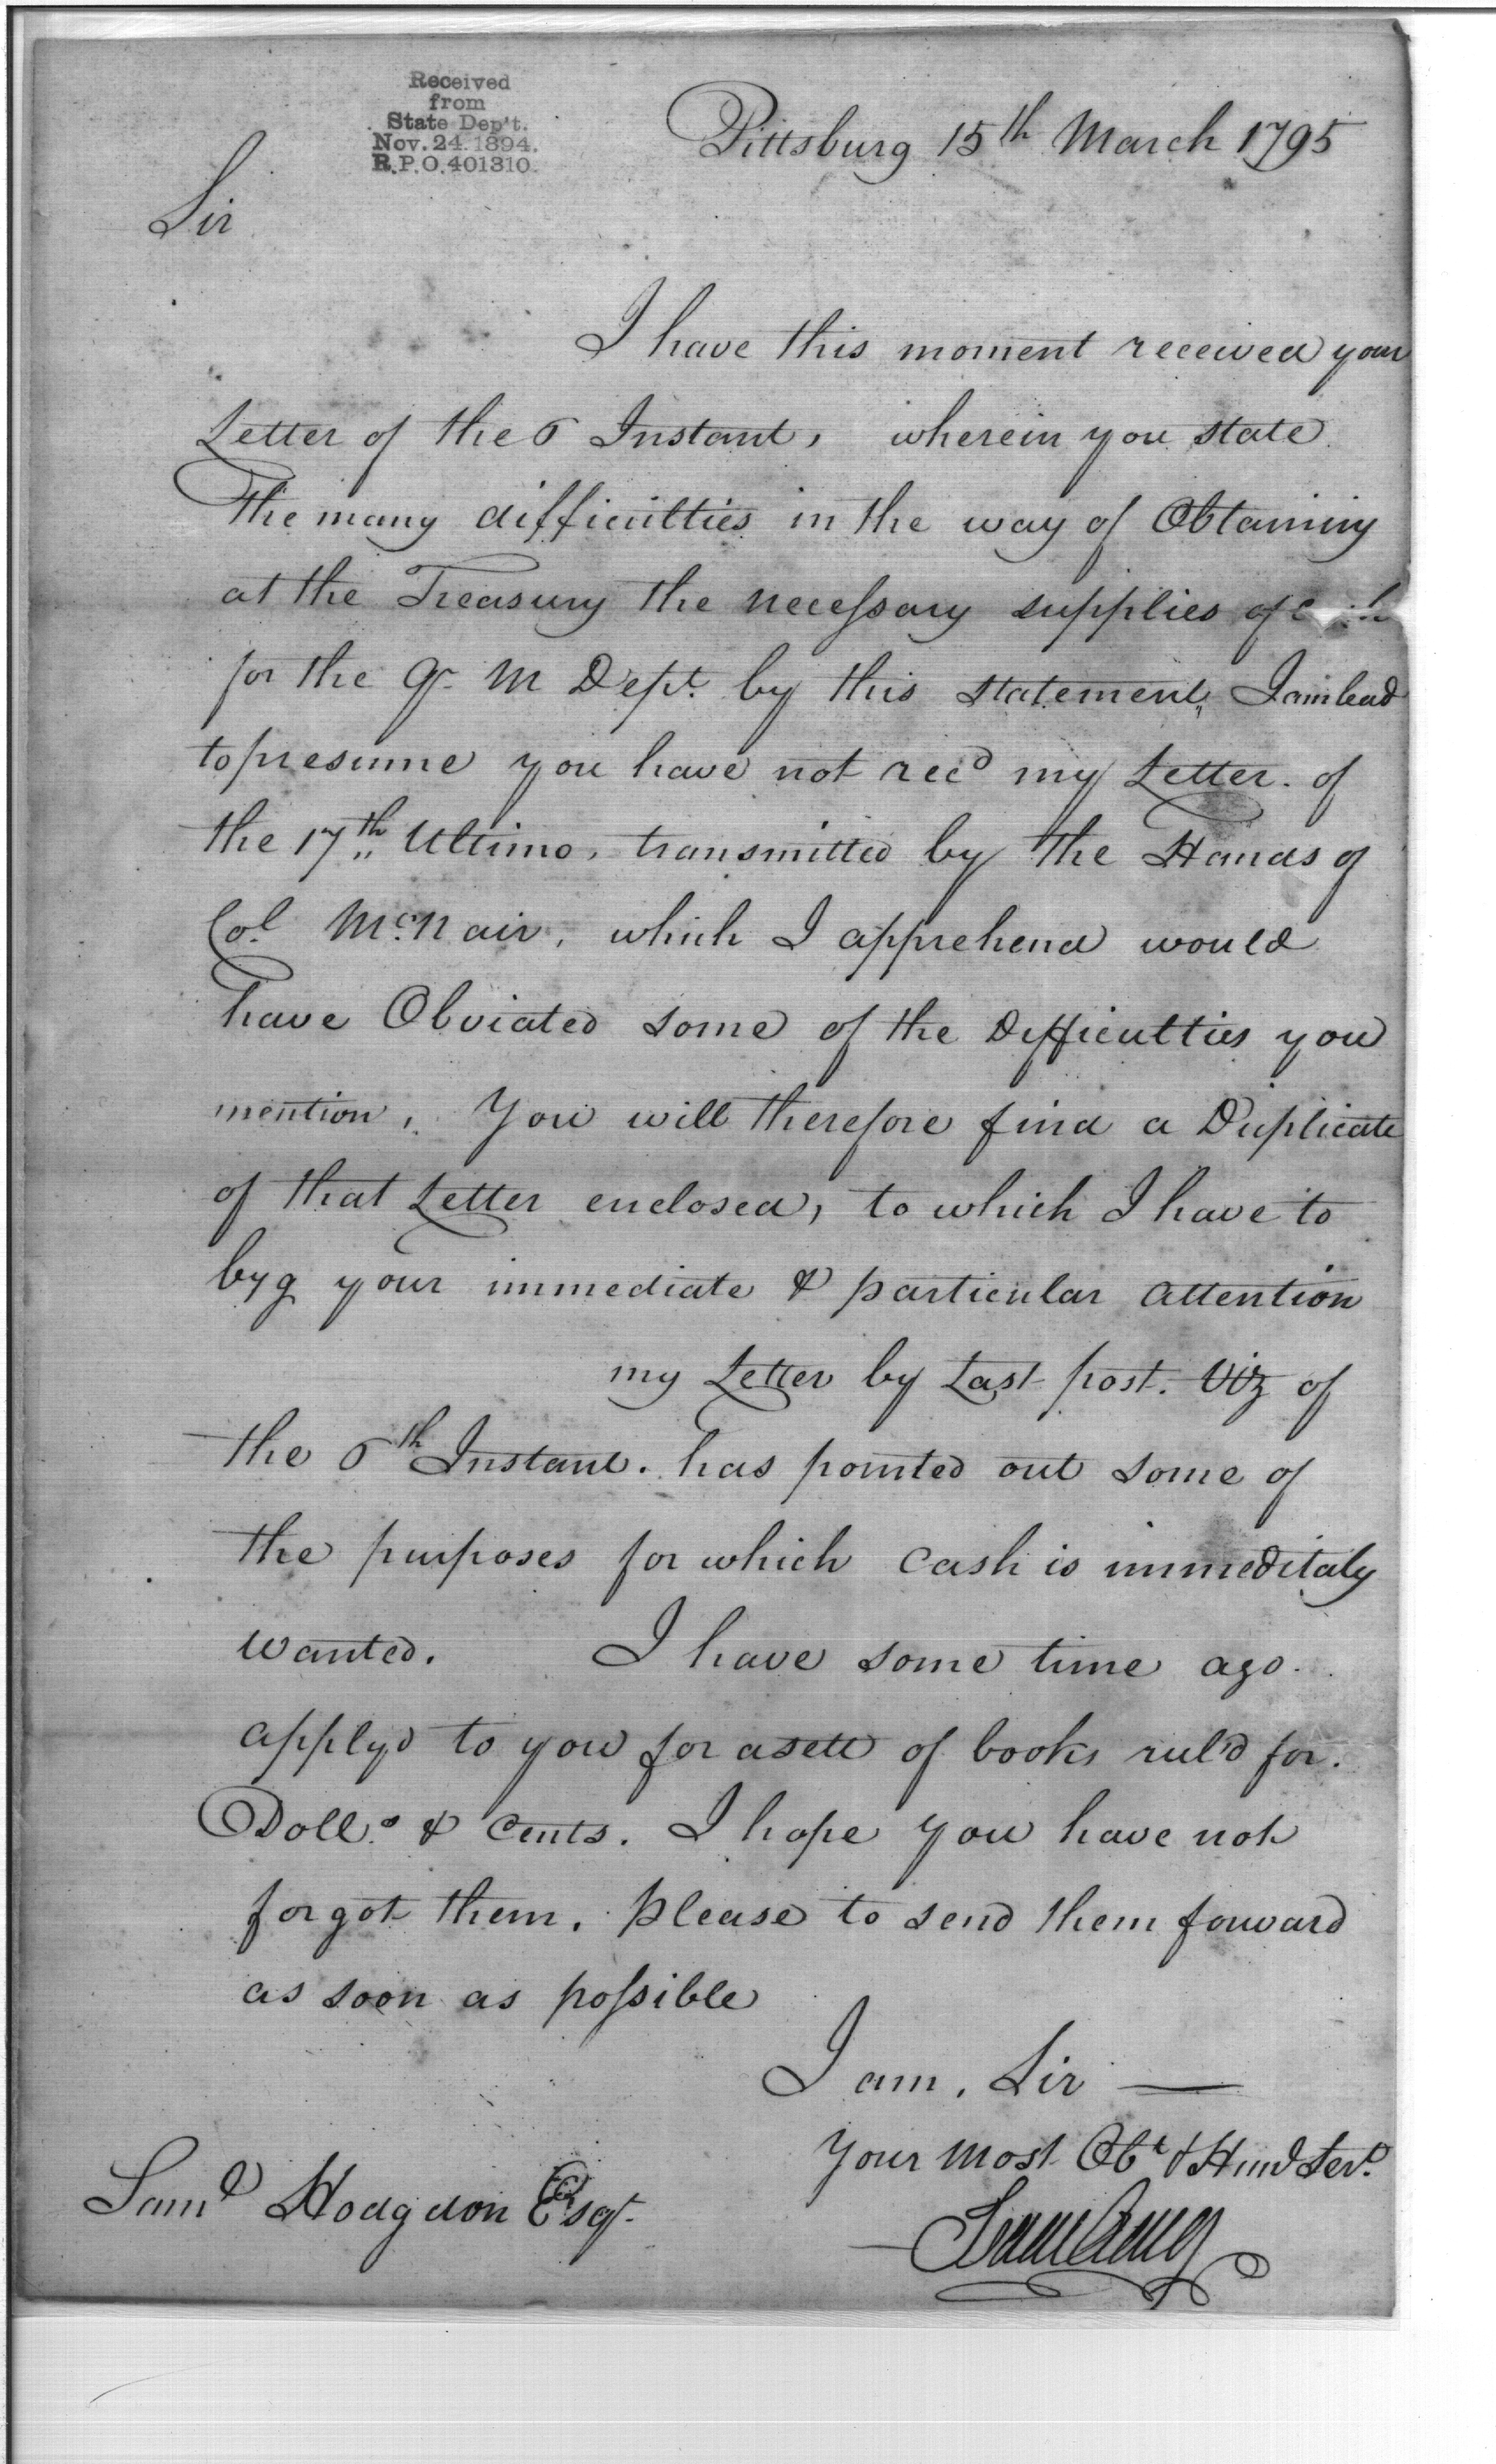 Received
from
State Dep't.
Nov. 24. 1894.
R.P.O. 401310.
Pittsburg 15th March 1795
Sir
I have this moment received your
Letter of the 6 Instant, wherein you state
The many difficulties in the way of Obtaining
at the Treasury the necessary supplies of
for the Qr. M Dept. by this statement, I am lead
to presume you have not recd my Letter of
the 17th Ultimo, transmitted by the Hands of
Col. McNair, which I apprehend would
have Obviated some of the Difficulties you
mention, You will therefore find a Duplicate
of that Letter enclosed, to which I have to
byg your immediate & particular attention
my Letter by Last post. Viz of
the 6th Instant. has pointed out some of
the purposes for which Cash is immeditaly
wanted. I have some time ago.
applyd to you for a sett of books rul'd for.
Dolls. & Cents. I hope you have not
forgot them. please to send them forward
as soon as possible
I am, Sir —
Your most Obt & Hum Servt.
Saml Hodgdon Esqr.